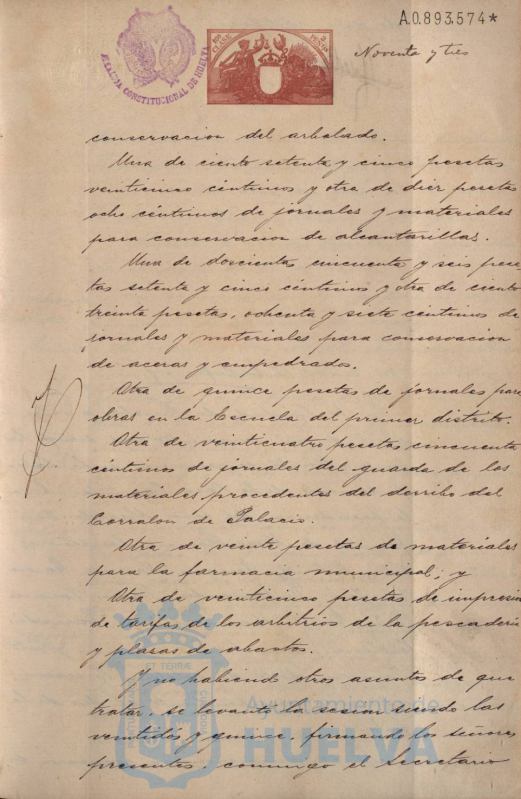 A.0.893.574*
Noventa y tres
ALCALDIA CONSTITUCIONAL DE HUELVA
conservacion del arbolado.
Una de ciento setenta y cinco pesetas
veinticinco céntimos y otra de diez pesetas
ocho céntimos de jornales y materiales
para conservacion de alcantarillas.
Una de doscientas cincuenta y seis pese
tas setenta y cinco céntimos y otra de ciento
treinta pesetas, ochenta y siete céntimos de
jornales y materiales para conservacion
de aceras y empedrados.
Otra de quince pesetas de jornales para
obras en la Escuela del primer distrito.
Otra de veinticuatro pesetas cincuenta
céntimos de jornales del guarda de los
materiales procedentes del derribo del
Corralon de Palacio.
Otra de veinte pesetas de materiales
para la farmacia municipal; y
Otra de veinticinco pesetas de impresion
de tarifas de los arbitrios de la pescaderia
y plazas de abastos.
Y no habiendo otros asuntos de que
tratar, se levantó la sesion siendo las
veintidós y quince, firmando los señores
presentes, conmigo el secretario
Ayuntamiento de
HUELVA